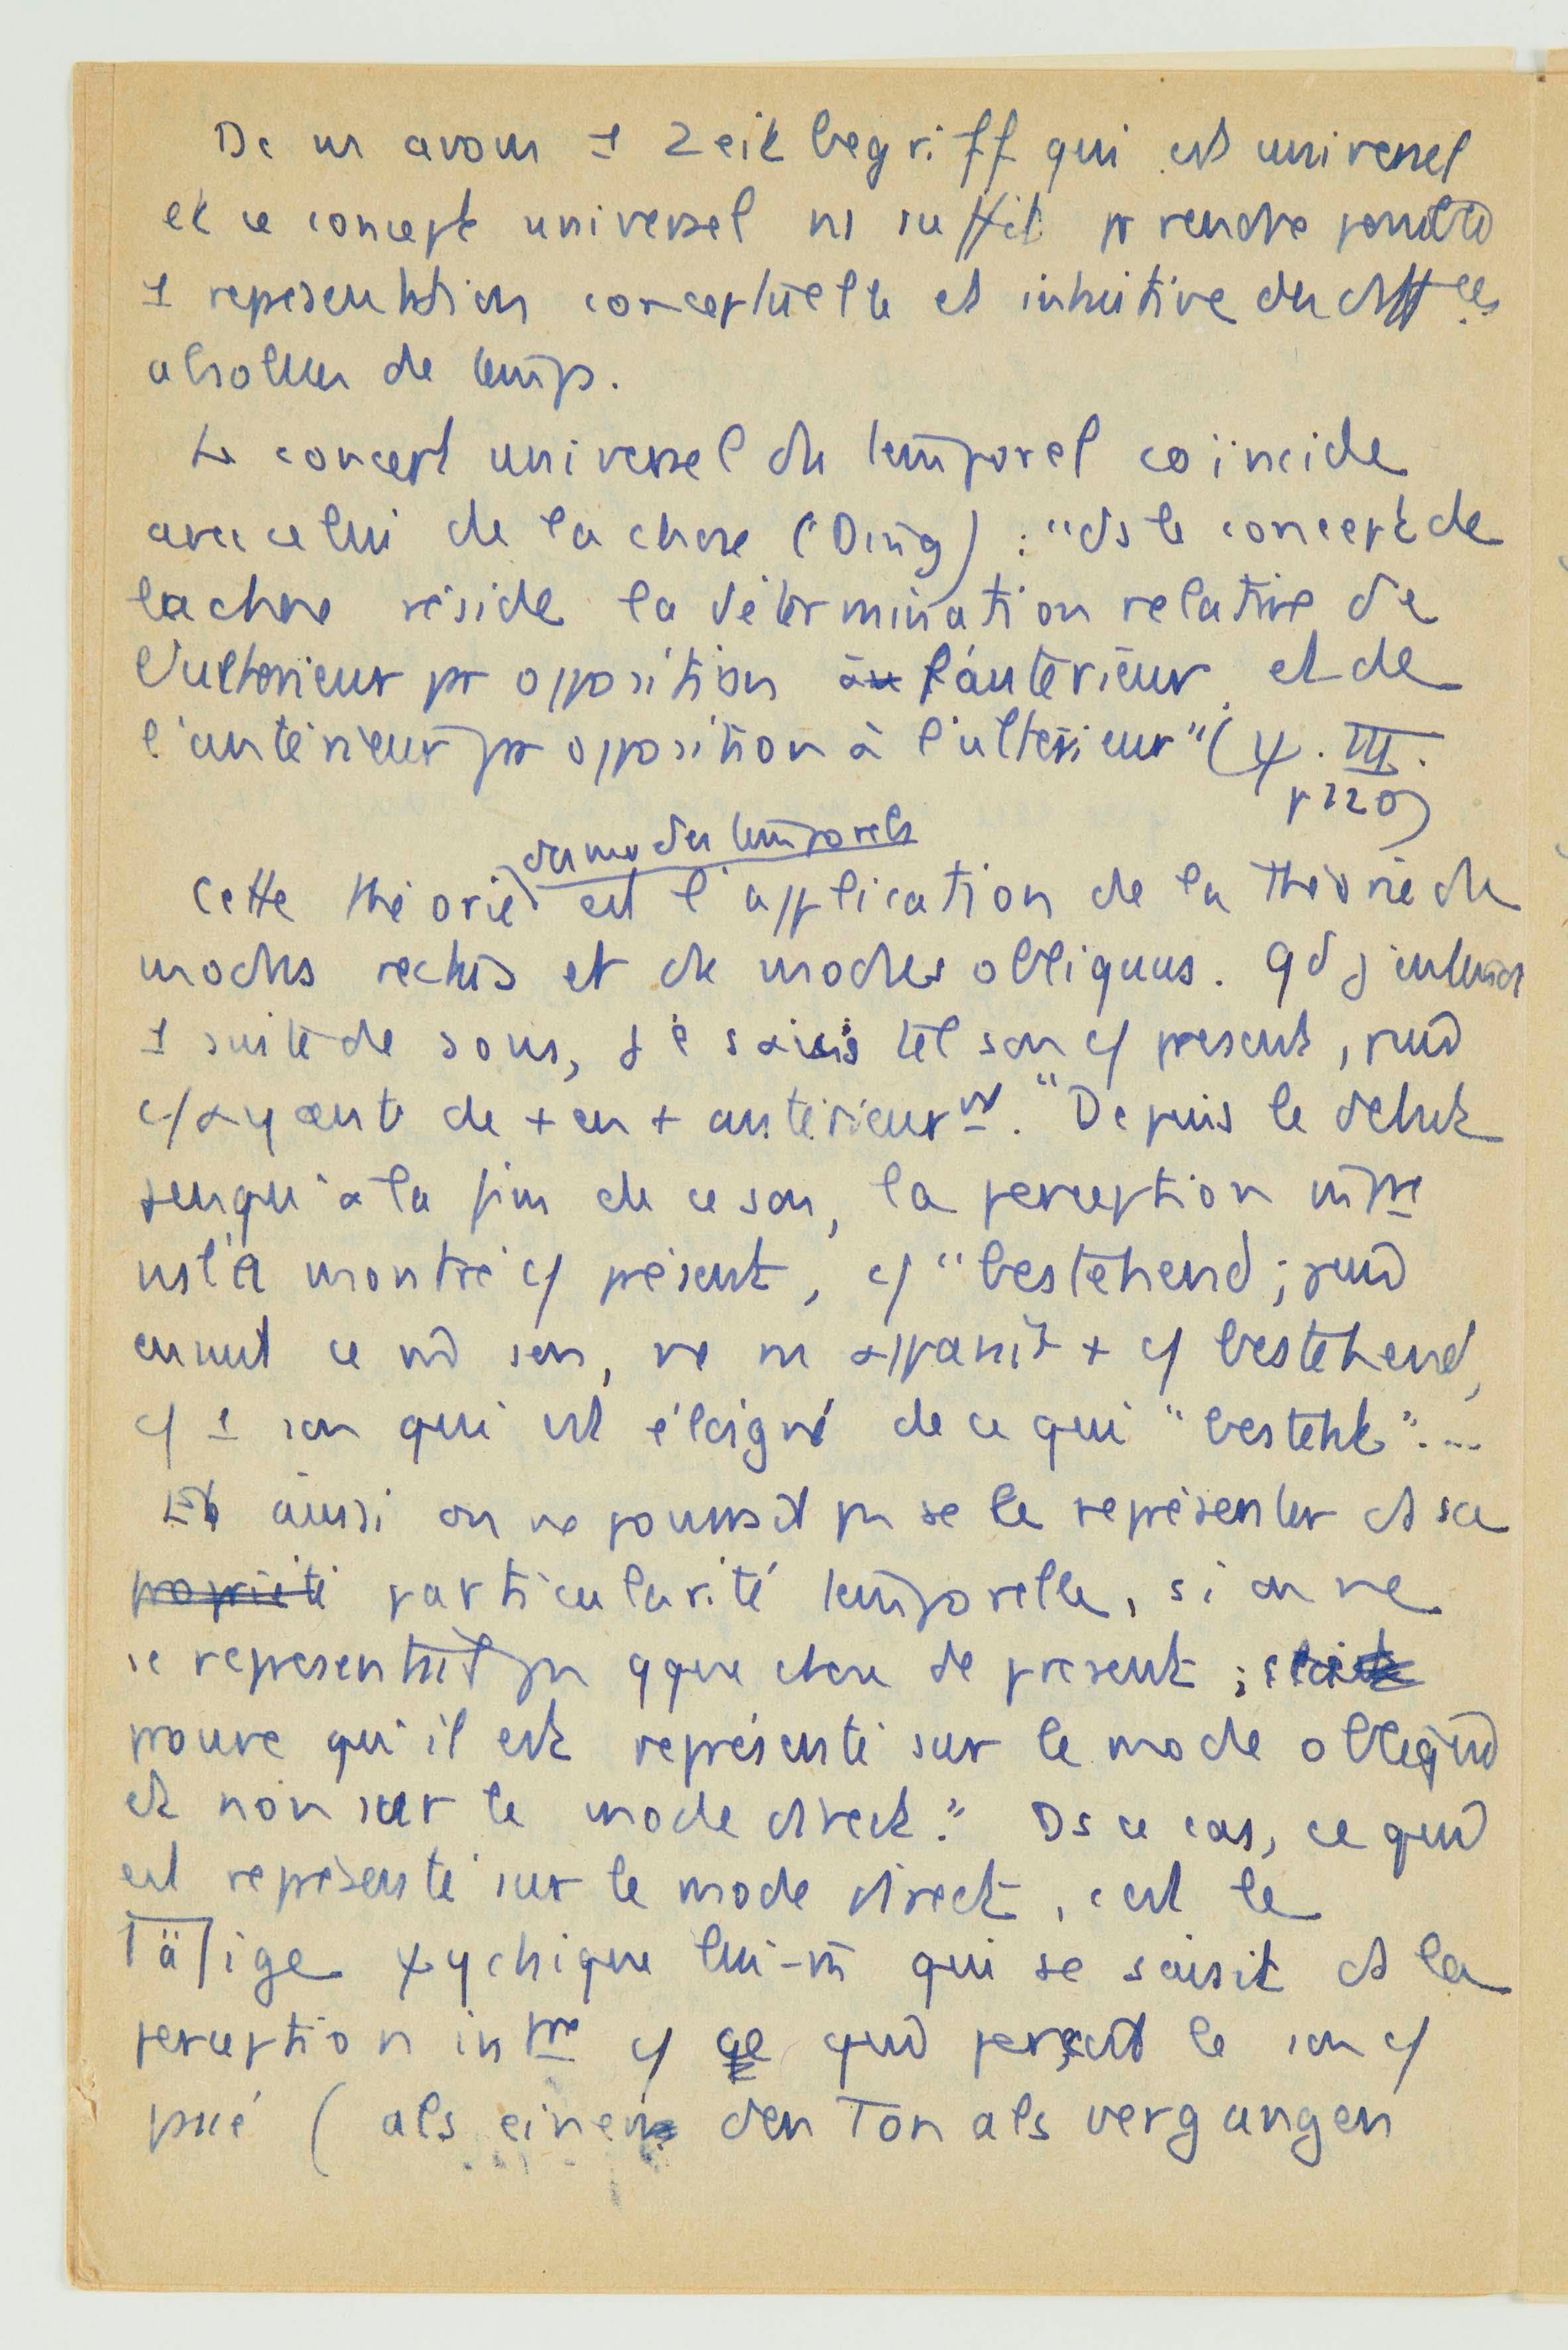 Dc ns avons 1 Zeitbegriff qui est universel
et ce concept universel ns suffit pr rendre
1 représentation conceptuelle et intuitive des diffces
absolues de temps.
Le concept universel du temporel coïncide
avec celui de la chose (Ding) : "ds le concept de
la chose réside la détermination relative de
l'ultérieur pr opposition à l'antérieur, et de
l'antérieur pr opposition à l'ultérieur" (ψ. III.
p 220)
des modes temporels
Cette théorie est l'application de la théorie du
modus rectus et du modus obliquus. qd j'entends
1 suite de sons, je saisis tel son c/ présent, puis
c/ ayant été de + en + antérieurt. "Depuis le début
jusqu'à la fin de ce son, la perception
ns l'a montré c/ présent, c/ "bestehend; puis
ensuite ce son, ne ns apparaît + c/ bestehend,
c/ 1 son qui est éloigné de ce qui "besteht"...
Et ainsi on ne pourrait pas se le représenter ds sa
propriété particularité temporelle, si on ne
se représentait pas qque chose de présent ;
prouve qu'il est représenté sur le mode oblique
et non sur le mode direct." Ds ce cas, ce qui
est représenté sur le mode direct, c'est le
Tätige ψychique lui-m̄ qui se saisit ds la
perception intne c/ ce qui perçoit le son c/
passé (als einen den Ton als vergangen